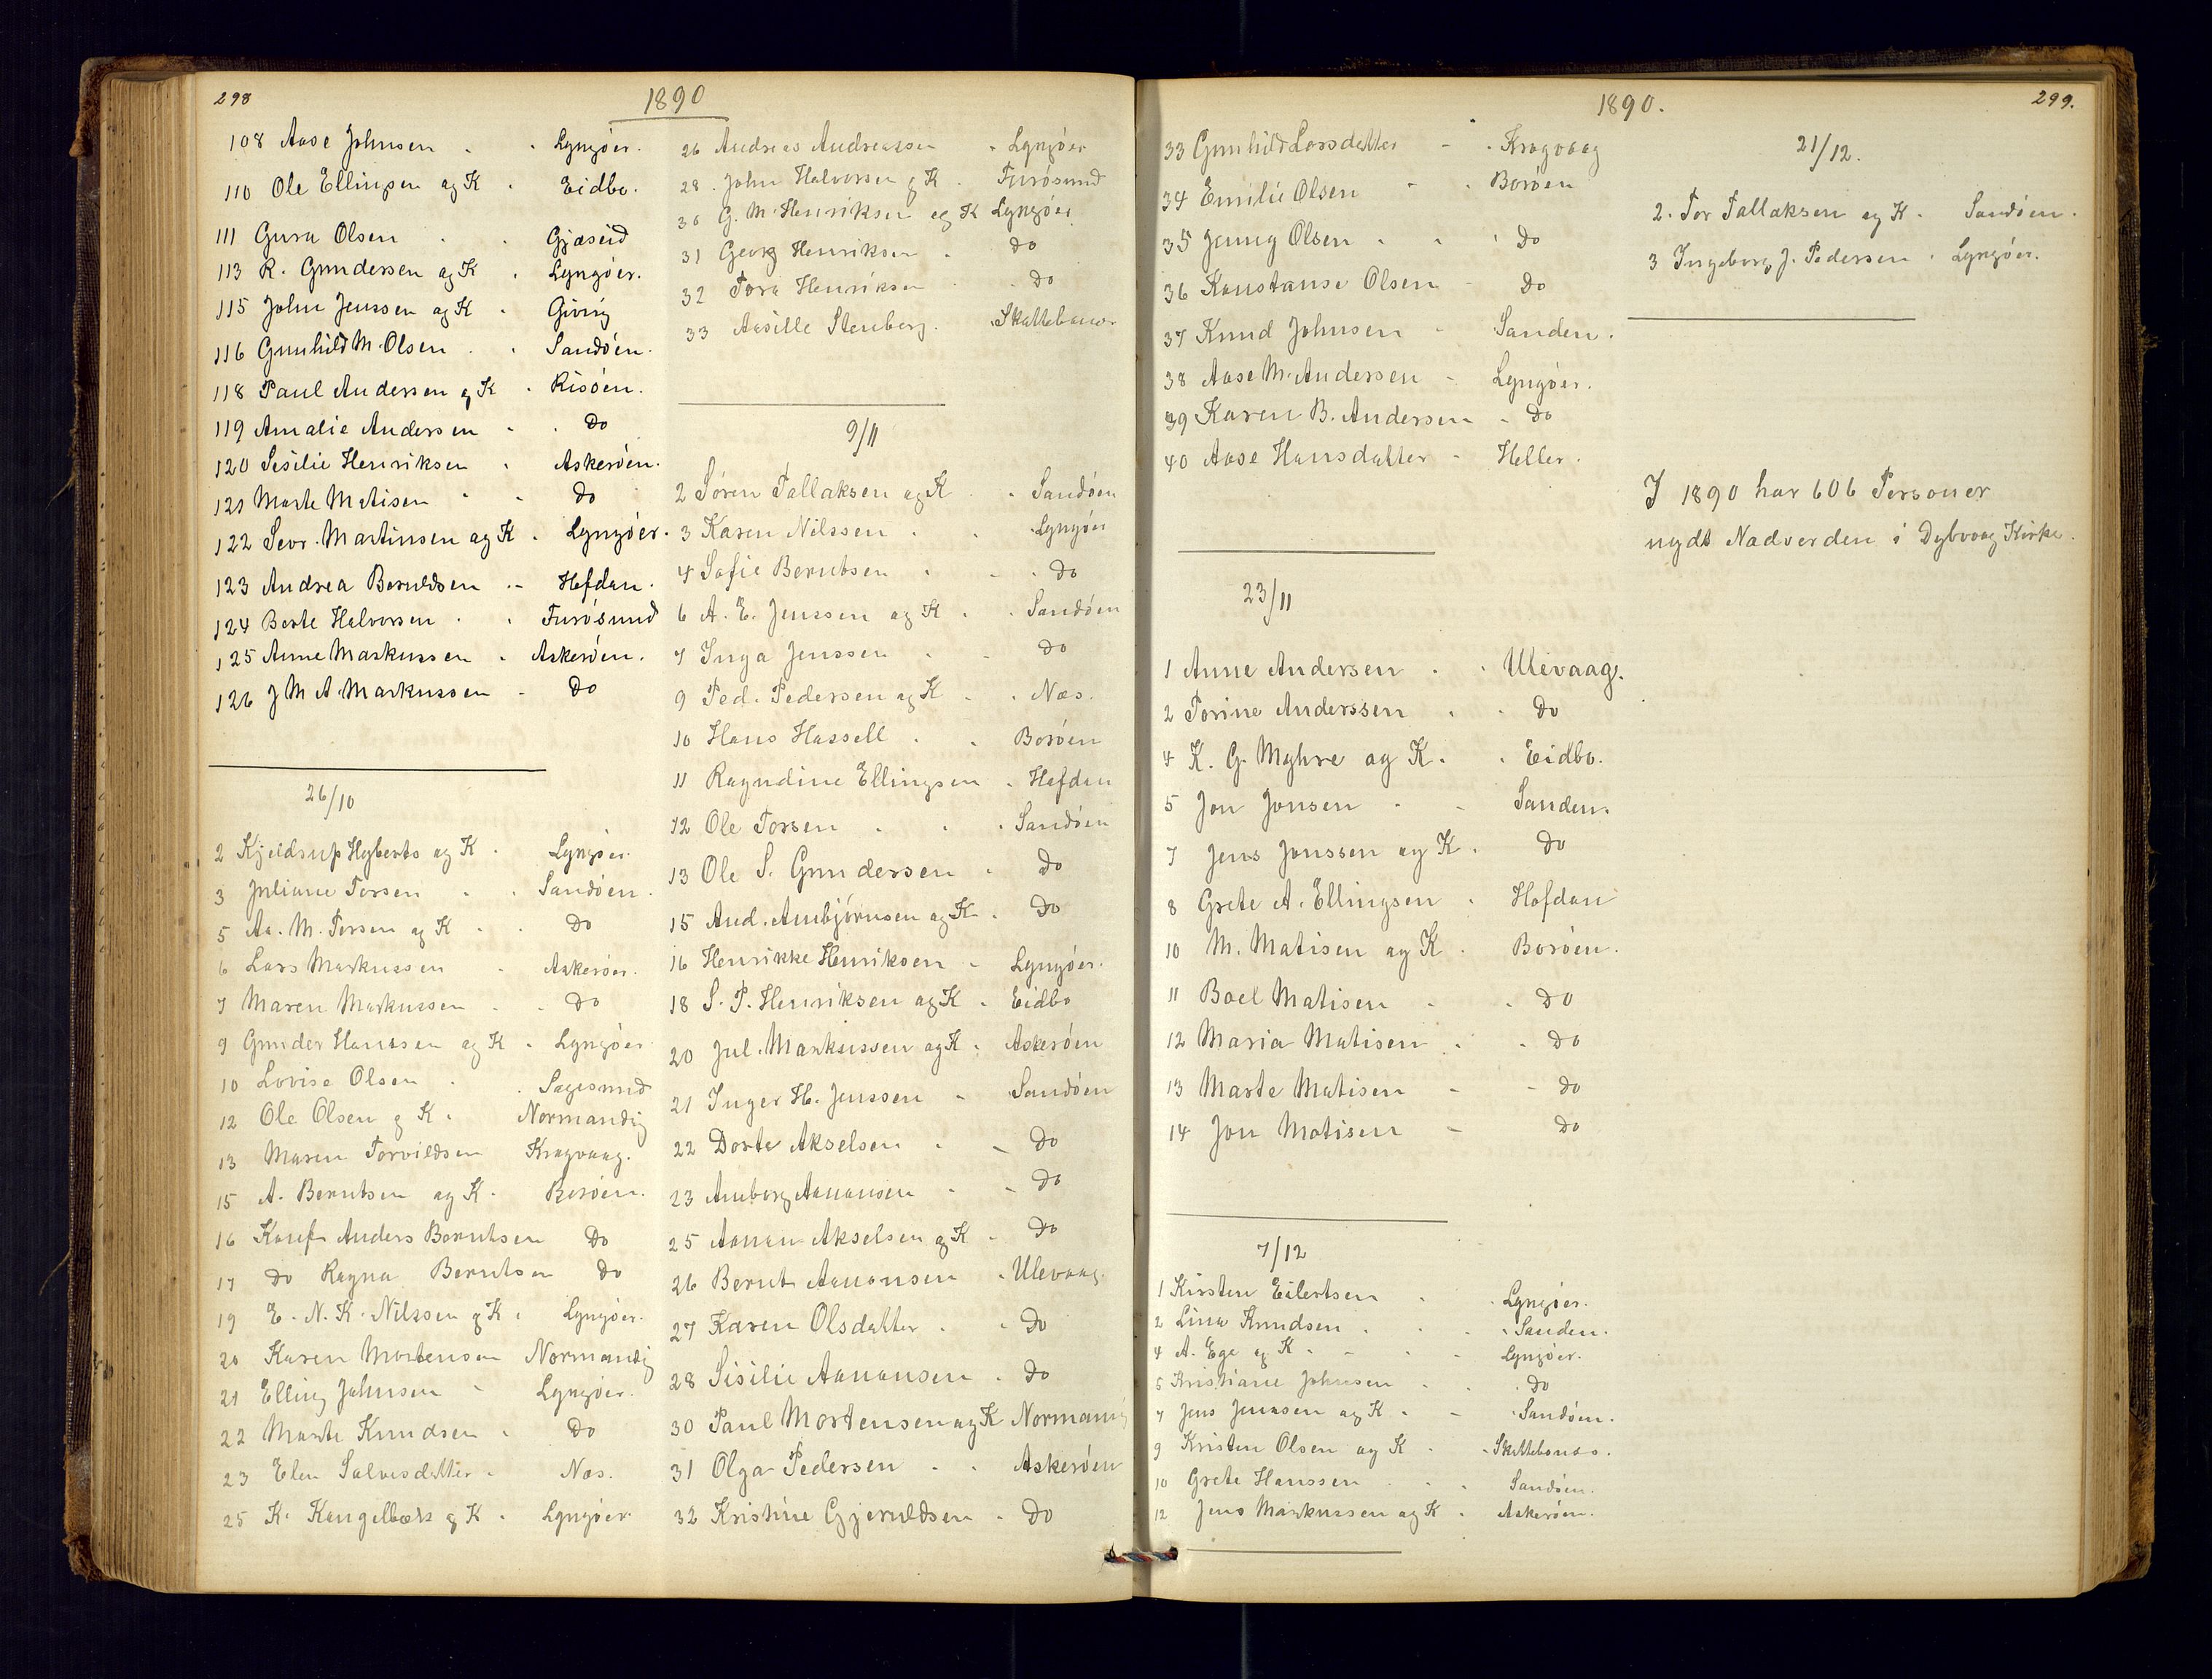 298
1890
108 Aase Johnsen - - Lyngöer.
110 Ole Ellingsen og K - Eidbo.
111 Gura Olsen - - Gjæseid
113 R. Gundersen og K - Lyngöer.
115 John Jenssen og K - Giving
116 Gunhild M. Olsen - - Sandöen.
118 Paul Andersen og K - Risöen.
119 Amalie Andersen - - Do
120 Sesilie Henriksen - Askeröen.
121 Marte Matisen - - Do
122 Sevr. Martinsen og K - Lyngöer.
123 Andrea Beruldsen - - Hefdan.
124 Berte Halvorsen - - Furösund
125 Anne Markussen - Askeröen.
126 J M A Markussen - Do
26/10
2 Kjeldsup Hyberts og K - Lyngöer.
3 Juliane Torsen - - Sandöen.
5 Aa. M. Torsen og K - - Do
6 Lars Markussen - Askeröer.
7 Maren Markussen - - Do
9 Gunder Hanssen og K - Lyngöer
10 Lovise Olsen - - Sagesund
12 Ole Olsen og K - Normandig
13 Maren Torvildsen Kragvaag.
15 A. Berntsen og K - Boröen.
16 Konf Anders Berntsen Do
17 Do Ragna Berntsen Do
19 E. N. K. Nilssen og K - Lyngöer.
20 Karen Mortensen Normandig
21 Elling Johnsen - Lyngöer.
22 Marte Knudsen - Do
23 Elen Salvesdatter - Næs.
25 K. Kangelbæk og K - Lyngöer
26 Andreas Andreassen - Lyngöer
28. John Halvorsen og K - Furösund
30 G. M. Henriksen og K Lyngöer
31 Georg Henriksen - Do
32 Tora Henriksen - Do
33 Aasille Stenberg. - Skattebonæs
9/11
2 Sören Tallaksen og K - - Sandöen
3 Karen Nilssen - - Lyngöer
4 Sofie Berntsen - - - Do
6 A. E. Jenssen og K - - Sandöen
7 Inga Jenssen - - Do
9 Ped. Pedersen og K - - Næs.
10 Hans Hassell - - Boröen
11 Ragndine Ellingsen - Hefdan
12 Ole Torsen - - - Sandöen
13 Ole S. Gundersen - Do
15 And. Aanbjörnsen og K - Do
16 Henrikke Henriksen - Lyngöer.
18 S. P. Henriksen og K - Eidbo
20 Jul. Markussen og K - Askeröen
21 Inger H. Jenssen - Sandöen
22 Dorte Akselsen - - Do
23 Amborg Aanonsen - - Do
25 Aanon Akselsen og K - Do
26 Bernt Aanonsen - Ulevaag.
27 Karen Olsdatter - - Do
28 Sisilie Aanonsen - Do
30 Paul Mortensen og K Normandig
31 Olga Pedersen - - Askeröen
32 Kristine Gjeruldsen - Do
1890.
299.
33 Gunhild Larsdatter - - Kragvaag
34 Emilie Olsen - - Boröen
35 Jenny Olsen - - - Do
36 Konstanse Olsen - Do
37 Knud Johnsen - Sanden.
38 Aase M. Andersen - Lyngöer.
39 Karen B. Andersen - Do
40 Aase Hansdatter - Heller.
23/11
1 Anne Andersen - - Ulevaag.
2 Torine Anderssen - - Do
4 K. G. Myhre og K. - Eidbo.
5 Jon Jonsen - - Sanden.
7 Jens Jonssen og K. Do
8 Grete A. Ellingsen - Hefdan
10 M. Matisen og K - Boröen.
11 Boel Matisen - - Do
12 Maria Matisen - - Do
13 Marte Matisen - - Do
14 Jon Matisen - Do
7/12
1 Kirsten Eilertsen - - Lyngöer.
2 Lina Knudsen - - - Sanden.
4 A. Ege og K - - - Lyngöer.
5 Kristiane Johnsen - - Do
7 Jens Jenssen og K - - Sandöen.
9 Kristen Olsen og K - - Skattebonæs.
10 Grete Hanssen - - Sandöen.
12 Jens Markussen og K - Askeröen.
21/12.
2. Tor Tallaksen og K. Sandöen.
3 Ingeborg J. Pedersen - Lyngöer.
I 1890 har 606 Personer
nydt Nadverden i Dybvaag Kirke.